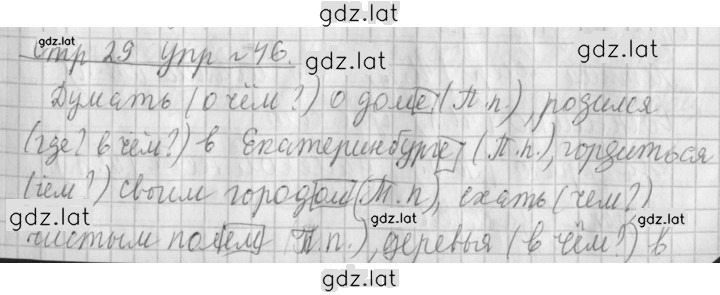 gdz.latˇ
gdz.lat
gdz.lat
стр 29 упр №46.
gdz.lat
Думать (о чём?) о доме (П.п.), родился
(где? в чём?) в Екатеринбурге (П.п.), гордиться
(чем?) своим городом (Т.п), ехать (чем?)
gdz.lat
gdz.lat
gdz.lat
чистым полем (Т.п.), деревья (в чём?) в
gdz.lat